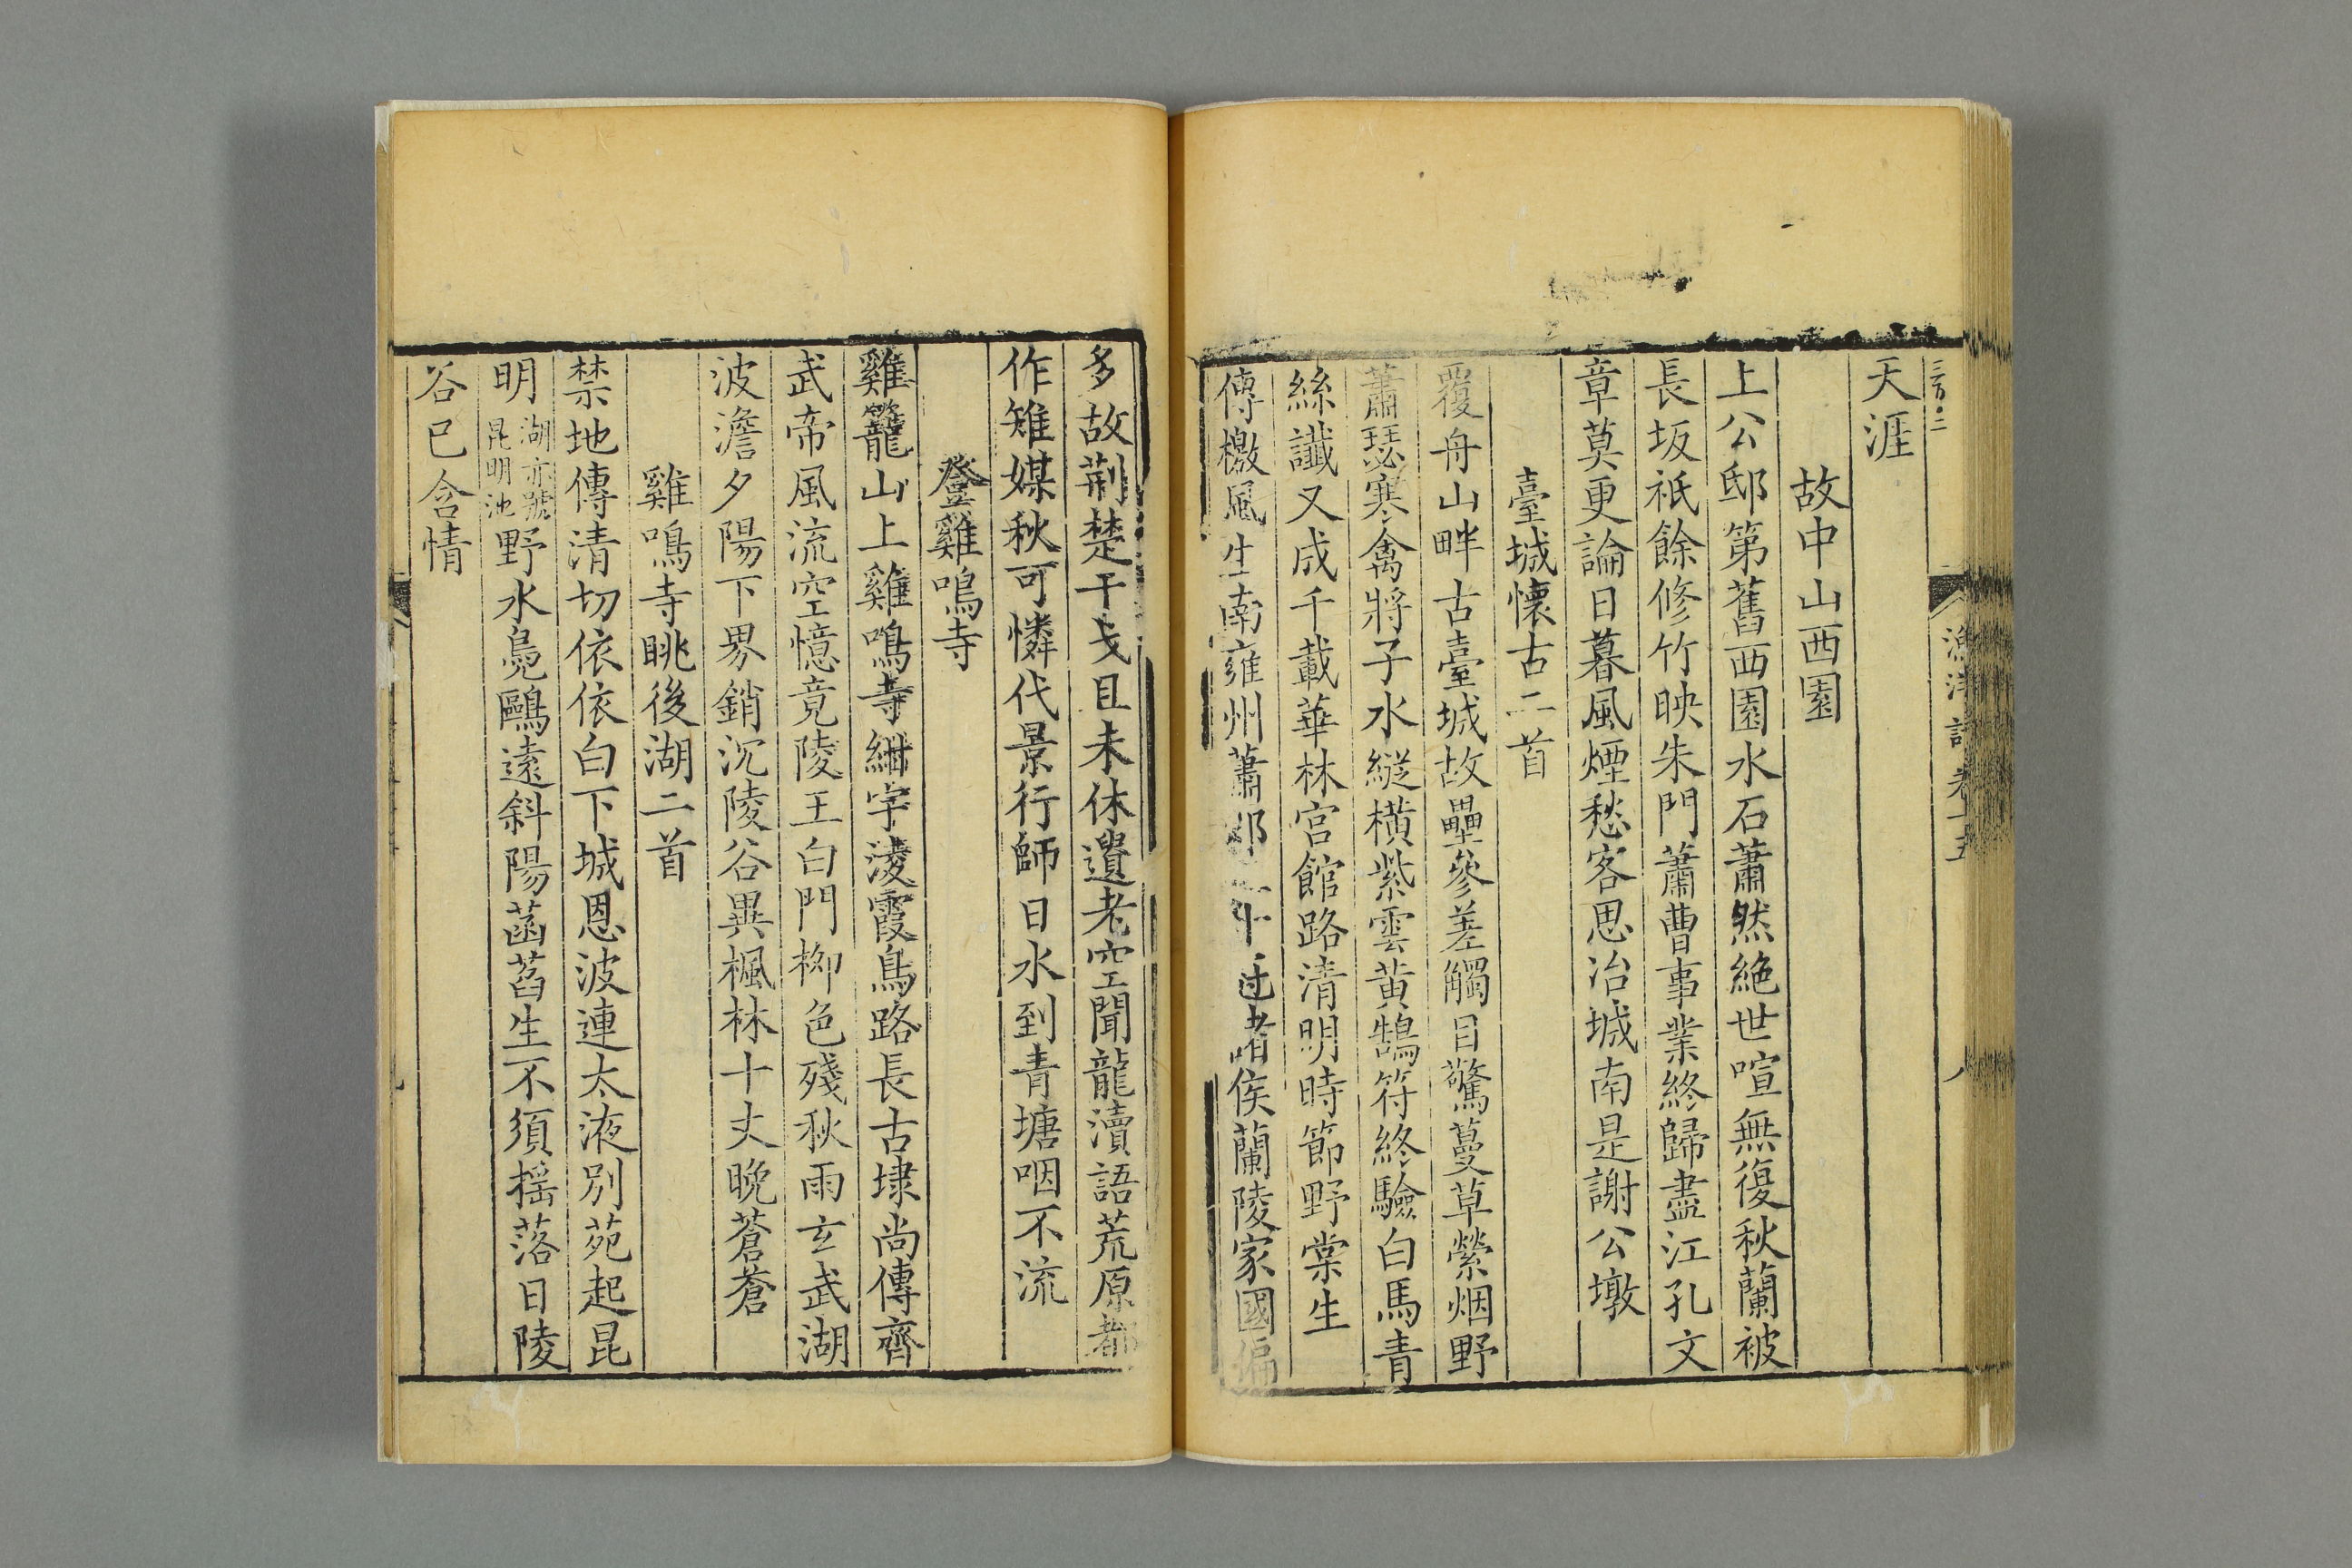 天涯
故中山西園
上公邸第舊西園水石蕭然絶世喧無復秋蘭被
長坂祇餘修竹映朱門蕭曹事業終歸盡江孔文
章莫更論日暮風煙愁客思冶城南是謝公墩
臺城懷古二首
覆舟山畔古臺城故壘參差觸目驚蔓草縈烟野
蕭瑟寒禽將子水縱橫紫雲黄鵠符終驗白馬青
絲讖又成千載華林宮館路清明時節野棠生
傳檄風生南雍州蕭郎 十 過諸侯蘭陵家國偏
多故荆楚干戈且未休遺老空聞龍瀆語荒原都
作雉媒秋可憐代景行師日水到青塘咽不流
登雞鳴寺
雞籠山上雞鳴寺紺宇淩霞鳥路長古埭尚傳齊
武帝風流空憶竟陵王白門柳色殘秋雨玄武湖
波澹夕陽下界銷沉陵谷異楓林十丈晚蒼蒼
雞鳴寺眺後湖二首
禁地傳清切依依白下城恩波連太液别苑起昆
明湖亦號昆明池野水鳧鷗遠斜陽菡萏生不須揺落日陵
谷已含情
漁洋詩 卷十五
八